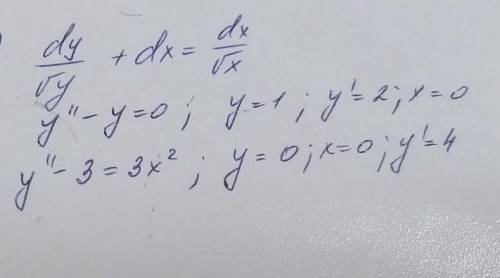 dy/√y + dx = dx/√x
y'' - y = 0 ; y = 1 ; y' = 2 ; x = 0
y'' - 3 = 3x² ; y = 0 ; x = 0 ; y' = 4